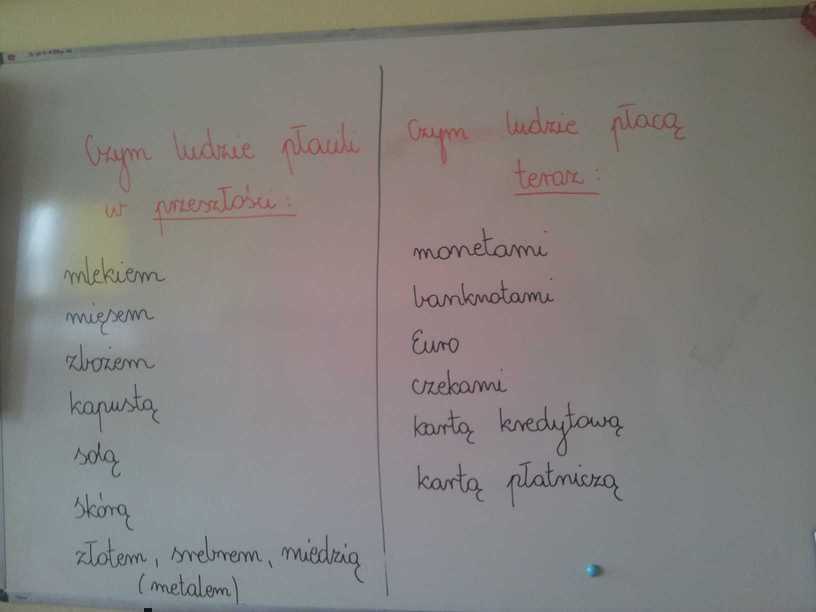 Czym ludzie płacili
w przeszłości:
mlekiem
mięsem
zbożem
kapustą
solą
skórą
złotem, srebrem, miedzią
(metalem)
Czym ludzie płacą
teraz:
monetami
banknotami
Euro
czekami
kartą kredytową
kartą płatniczą